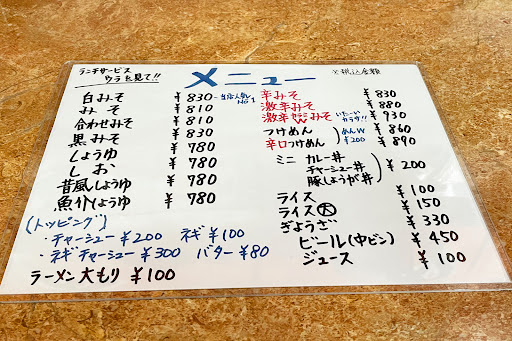 ランチサービス
ウラを見て!!
メニュー
※税込金額
白みそ ¥830 当店人気No1
みそ ¥780
合わせみそ ¥810
黒みそ ¥830
しょうゆ ¥780
しお ¥780
昔風しょうゆ ¥780
魚介しょうゆ ¥780
(トッピング)
・チャーシュー ¥200 ネギ ¥100
・ネギチャーシュー ¥300 バター ¥80
ラーメン大もり ¥100
辛みそ ¥830
激辛みそ ¥880
激辛Wみそ ¥930
つけめん ¥860
辛口つけめん ¥890
めんW
¥200
ミニ カレー丼
チャーシュー丼
豚しょうが丼
¥200
ライス ¥100
ライス大 ¥150
ぎょうざ ¥330
ビール(中ビン) ¥450
ジュース ¥100